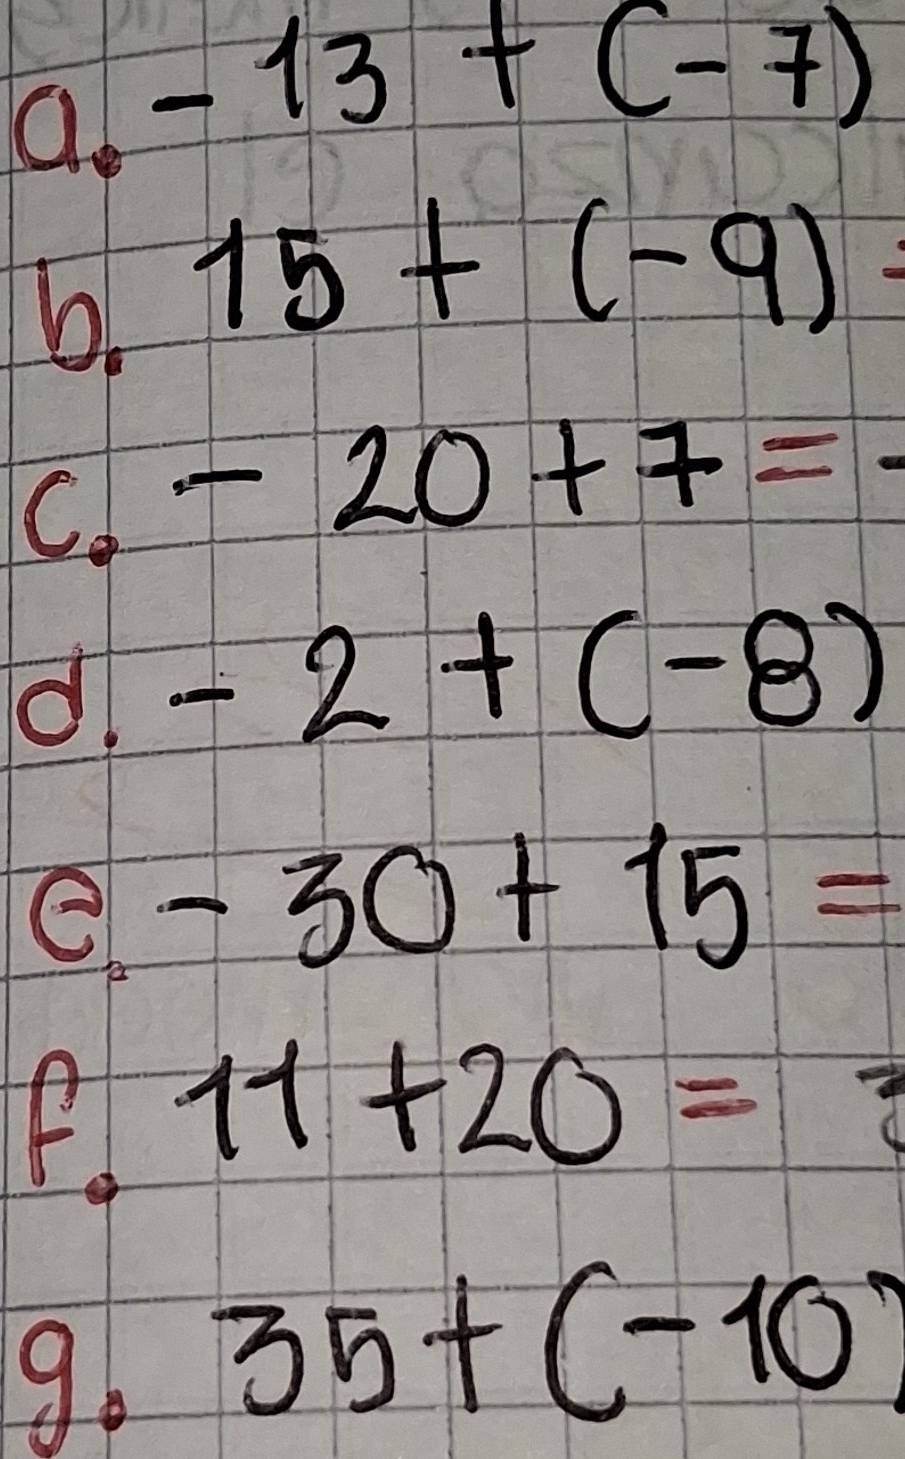 a. -13 + (-7)
b. 15 + (-9) =
c. - 20 + 7 = -
d. - 2 + (-8)
e. - 30 + 15 =
f. 11 + 20 =
g. 35 + (-10)